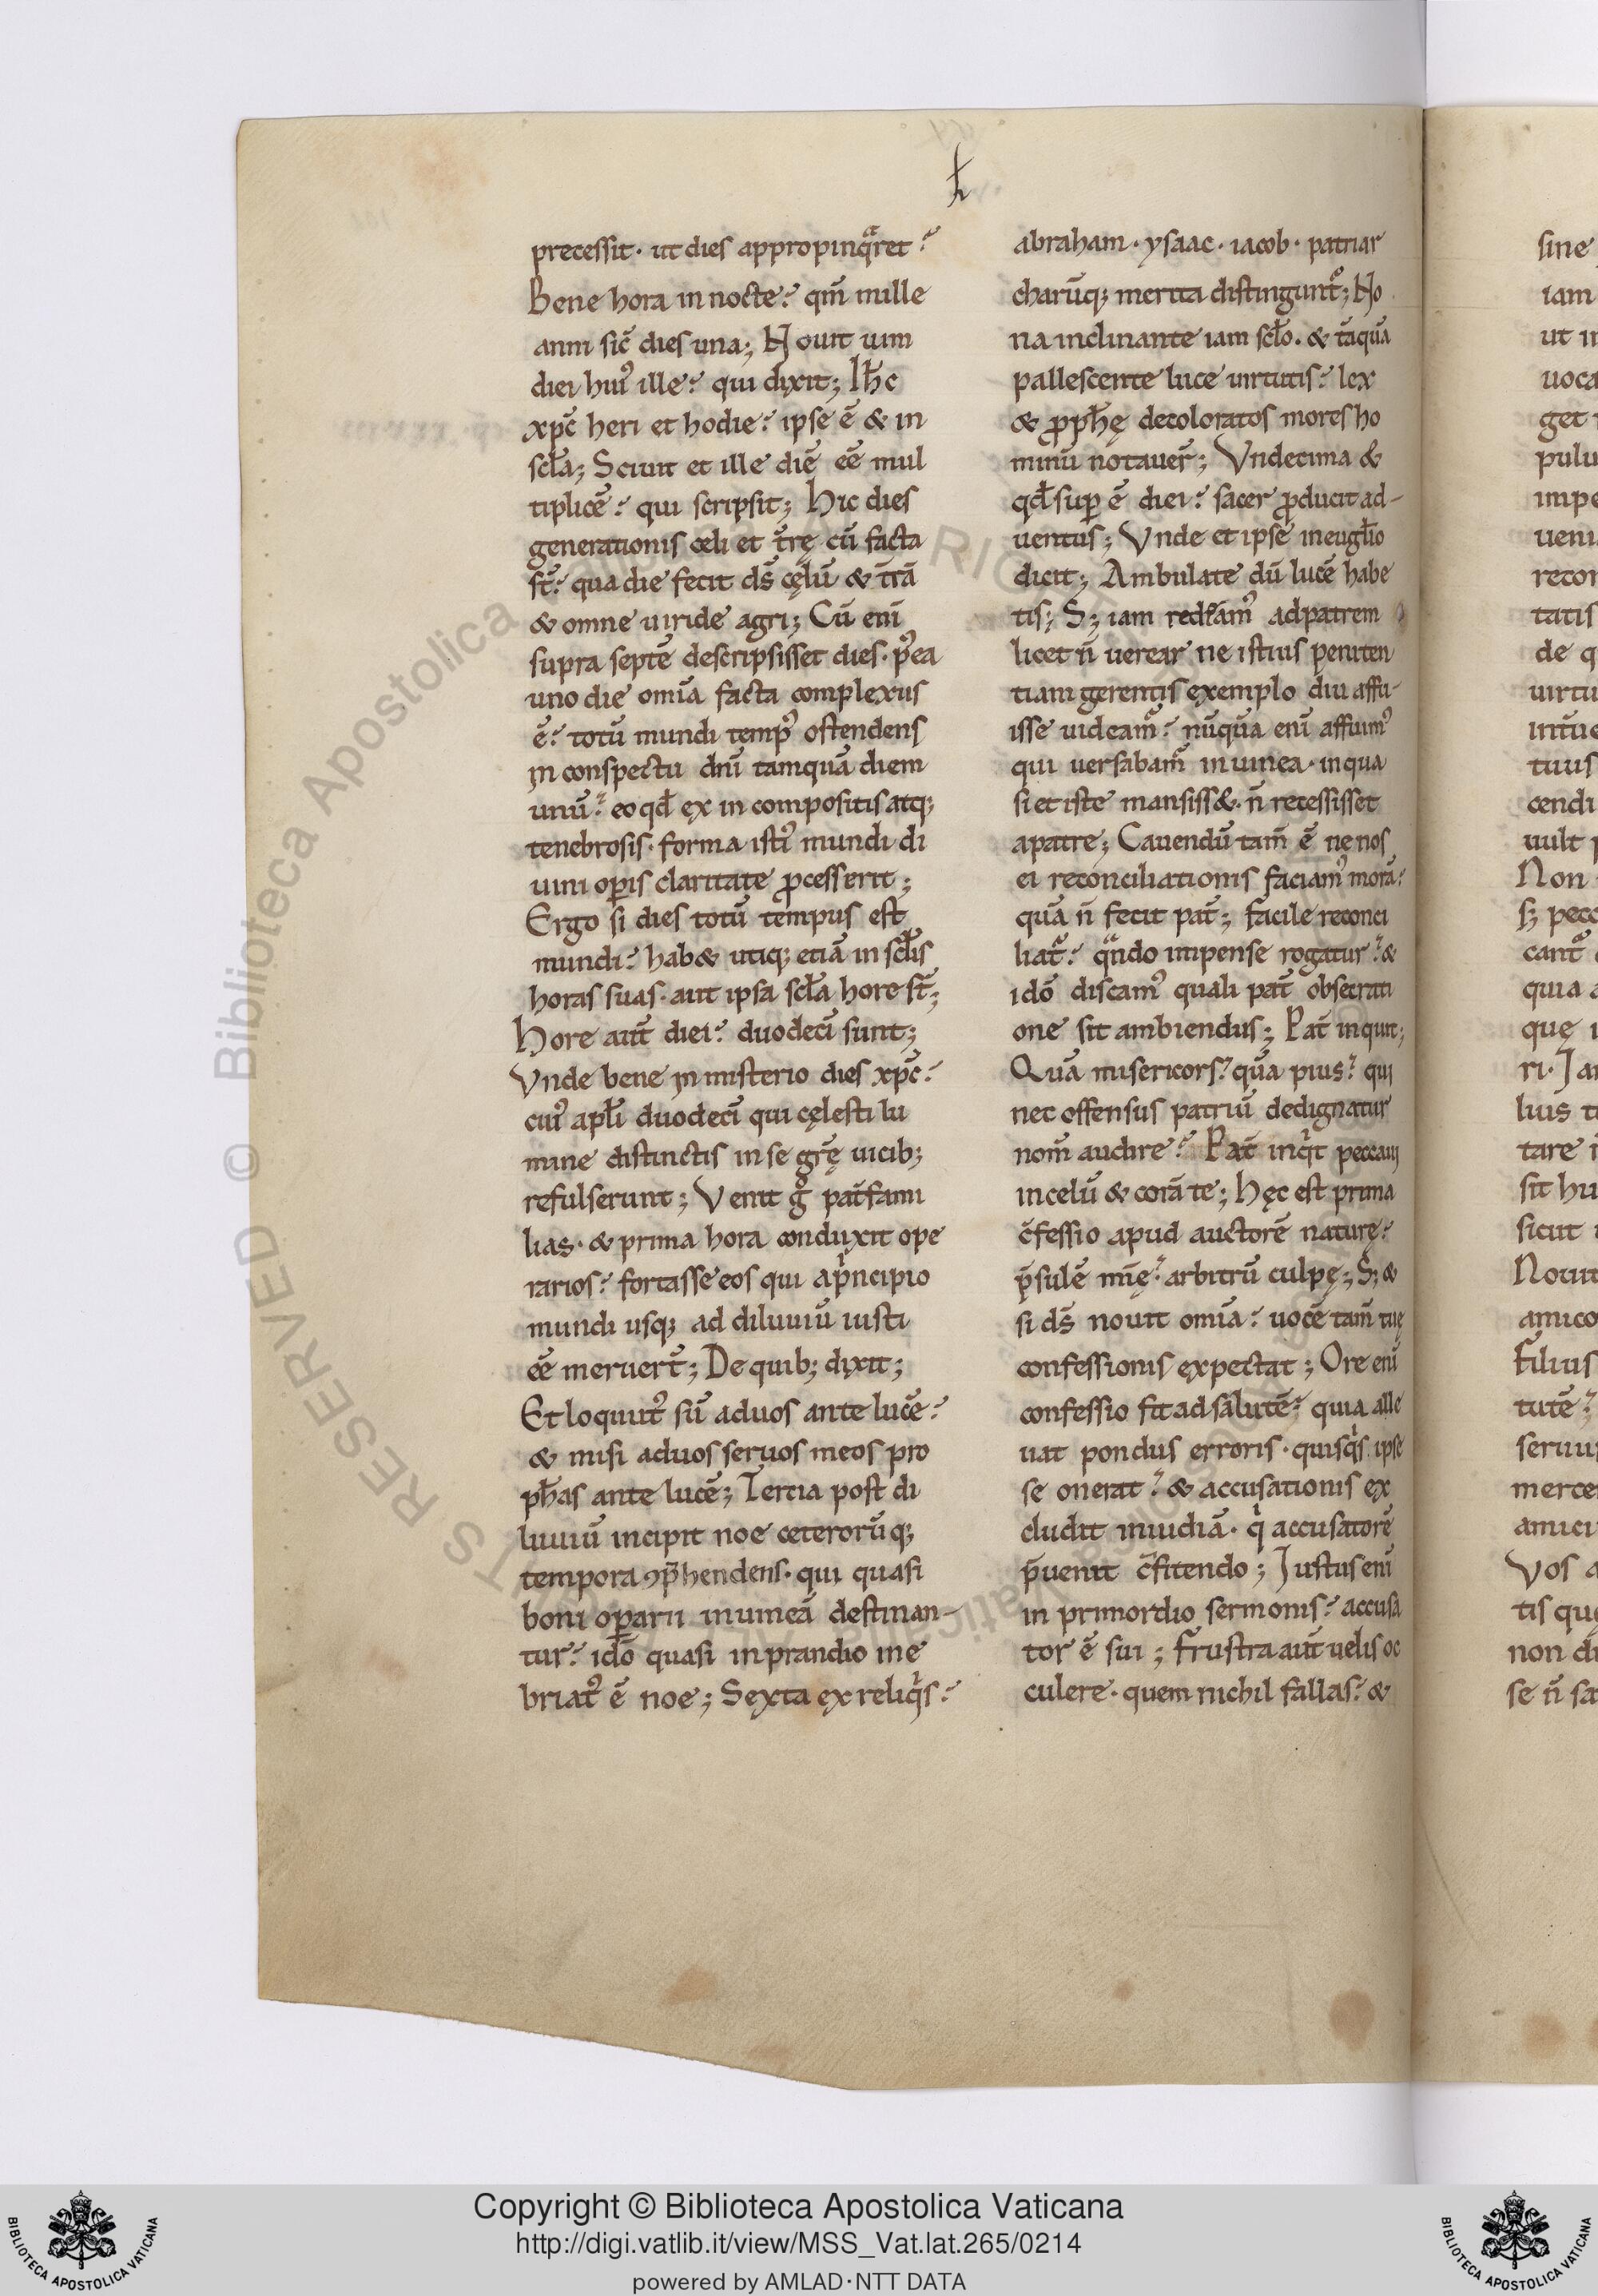 ł
precessit· ut dies appropinq̃ret?
Bene hora in nocte? qm̃ mille
anni sic̃ dies una; Nouit uim
diei hui᾿ ille? qui dixit; Ih̅c
xp̅c heri et hodie? ipse ē & in
scl̅a; Sciuit et ille diē eē mul
tiplicē? qui scripsit; Hic dies
generationis cęli et t̃rę cū facta
st̃? qua die fecit ds̅ cęlū & t̃rā
& omne uiride agri; Cū eni̅
supra septē descripsisset dies· p᾿ea
uno die omīa facta complexus
ē? totū mundi temp᾿ ostendens
in conspectu dnī tamquā diem
unū? eo qd̅ ex in compositis atq;
tenebrosis· forma isti᾿ mundi di
uini op̱is claritate ꝓcesserit;
Ergo si dies totū tempus est
mundi? hab& utiq; etiā in scl̅is
horas suas· aut ipsa scl̅a hore st̃;
Hore aut̃ diei? duodeci̅ sunt;
Vnde bene in misterio dies xp̅c?
cui᾿ apl̅i duodeci̅ qui cęlesti lu
mine distinctis in se gr̃ę uicib;
refulserunt; Venit g̊ pat̃fami
lias· & prima hora conduxit ope
rarios? fortasse eos qui a pⁱncipio
mundi usq; ad diluuiū iusti
eē meruert̃; De quib; dixit;
Et loquut᾿ sū aduos ante lucē?
& misi aduos seruos meos pro
ph̅as ante lucē; Tertia post di
luuiū incipit noe ceterorūq;
tempora ꝯp̃hendens· qui quasi
boni oꝑarii inuineā destinan-
tur? idō quasi inprandio ine
briat᾿ ē noe; Sexta ex reliqⁱs?
abraham· ysaac· iacob· patriar
charūq; merita distingunt᾿; No
na inclinante iam scl̅o. & tāquā
pallescente luce uirtutis? lex
& ꝓph̅ę decoloratos mores ho
minū notauer̃; Vndecima &
qd̅ suꝑ ē diei? sacer ꝓducit ad-
uentus; Vnde et ipse in eugl̅io
dicit; Ambulate dū lucē habe
tis; S; iam redeam᾿ adpatrem
licet n̄ uerear ne istius peniten
tiam gerentis exemplo diu affu-
isse uideam᾿? nūquā eni̅ affuim᾿
qui uersabam᾿ inuinea· inqua
si et iste mansiss&· n̄ recessisset
apatre; Cauendū tam̃ ē ne nos
ei reconciliationis faciam᾿ morā?
quā n̄ fecit pat̃; facile reconci
liat᾿? qͣndo impense rogatur? &
idō discam᾿ quali pat̃ obsecrati
one sit ambiendus; Pat̃ inquit;
Quā misericors? quā pius? qui
nec offensus patriū dedignatur
nom̃ audire? Pat̃ inqⁱt peccaui
incelū & corā te; Hęc est prima
c̃fessio apud auctorē naturę?
p̃sulē mīę? arbitrū culpę; S; &
si ds̅ nouit omīa? uocē tam̃ tuę
confessionis expectat; Ore eni̅
confessio fit ad salutē? quia alle
uat pondus erroris· quisqⁱs ipse
se onerat? & accusationis ex
cludit inuidiā· qⁱ accusatorē
p̃uenit c̃fitendo; Iustus eni̅
in primordio sermonis? accusa
tor ē sui; frustra aut̃ uelis oc
culere· quem nichil fallas? &
sine
iam
ut in
uoca
get
pulu
impe
ueni
recor
tatis
de q
uirtu
intue
tuus
cendi
uult
Non
s; pecc
cant᾿
quia
que
ri· Ia
luis
tare
sit hu
sicut
Nouit
amico
Filius
tutē?
seruu
merce
amici
Vos a
tis que
non di
se n̄ sa
© Biblioteca Apostolica Vaticana
RIGHTS RESERVED
Copyright © Biblioteca Apostolica Vaticana
http://digi.vatlib.it/view/MSS_Vat.lat.265/0214
powered by AMLAD·NTT DATA
BIBLIOTECA APOSTOLICA VATICANA
BIBLIOTECA APOSTOLICA VATICANA